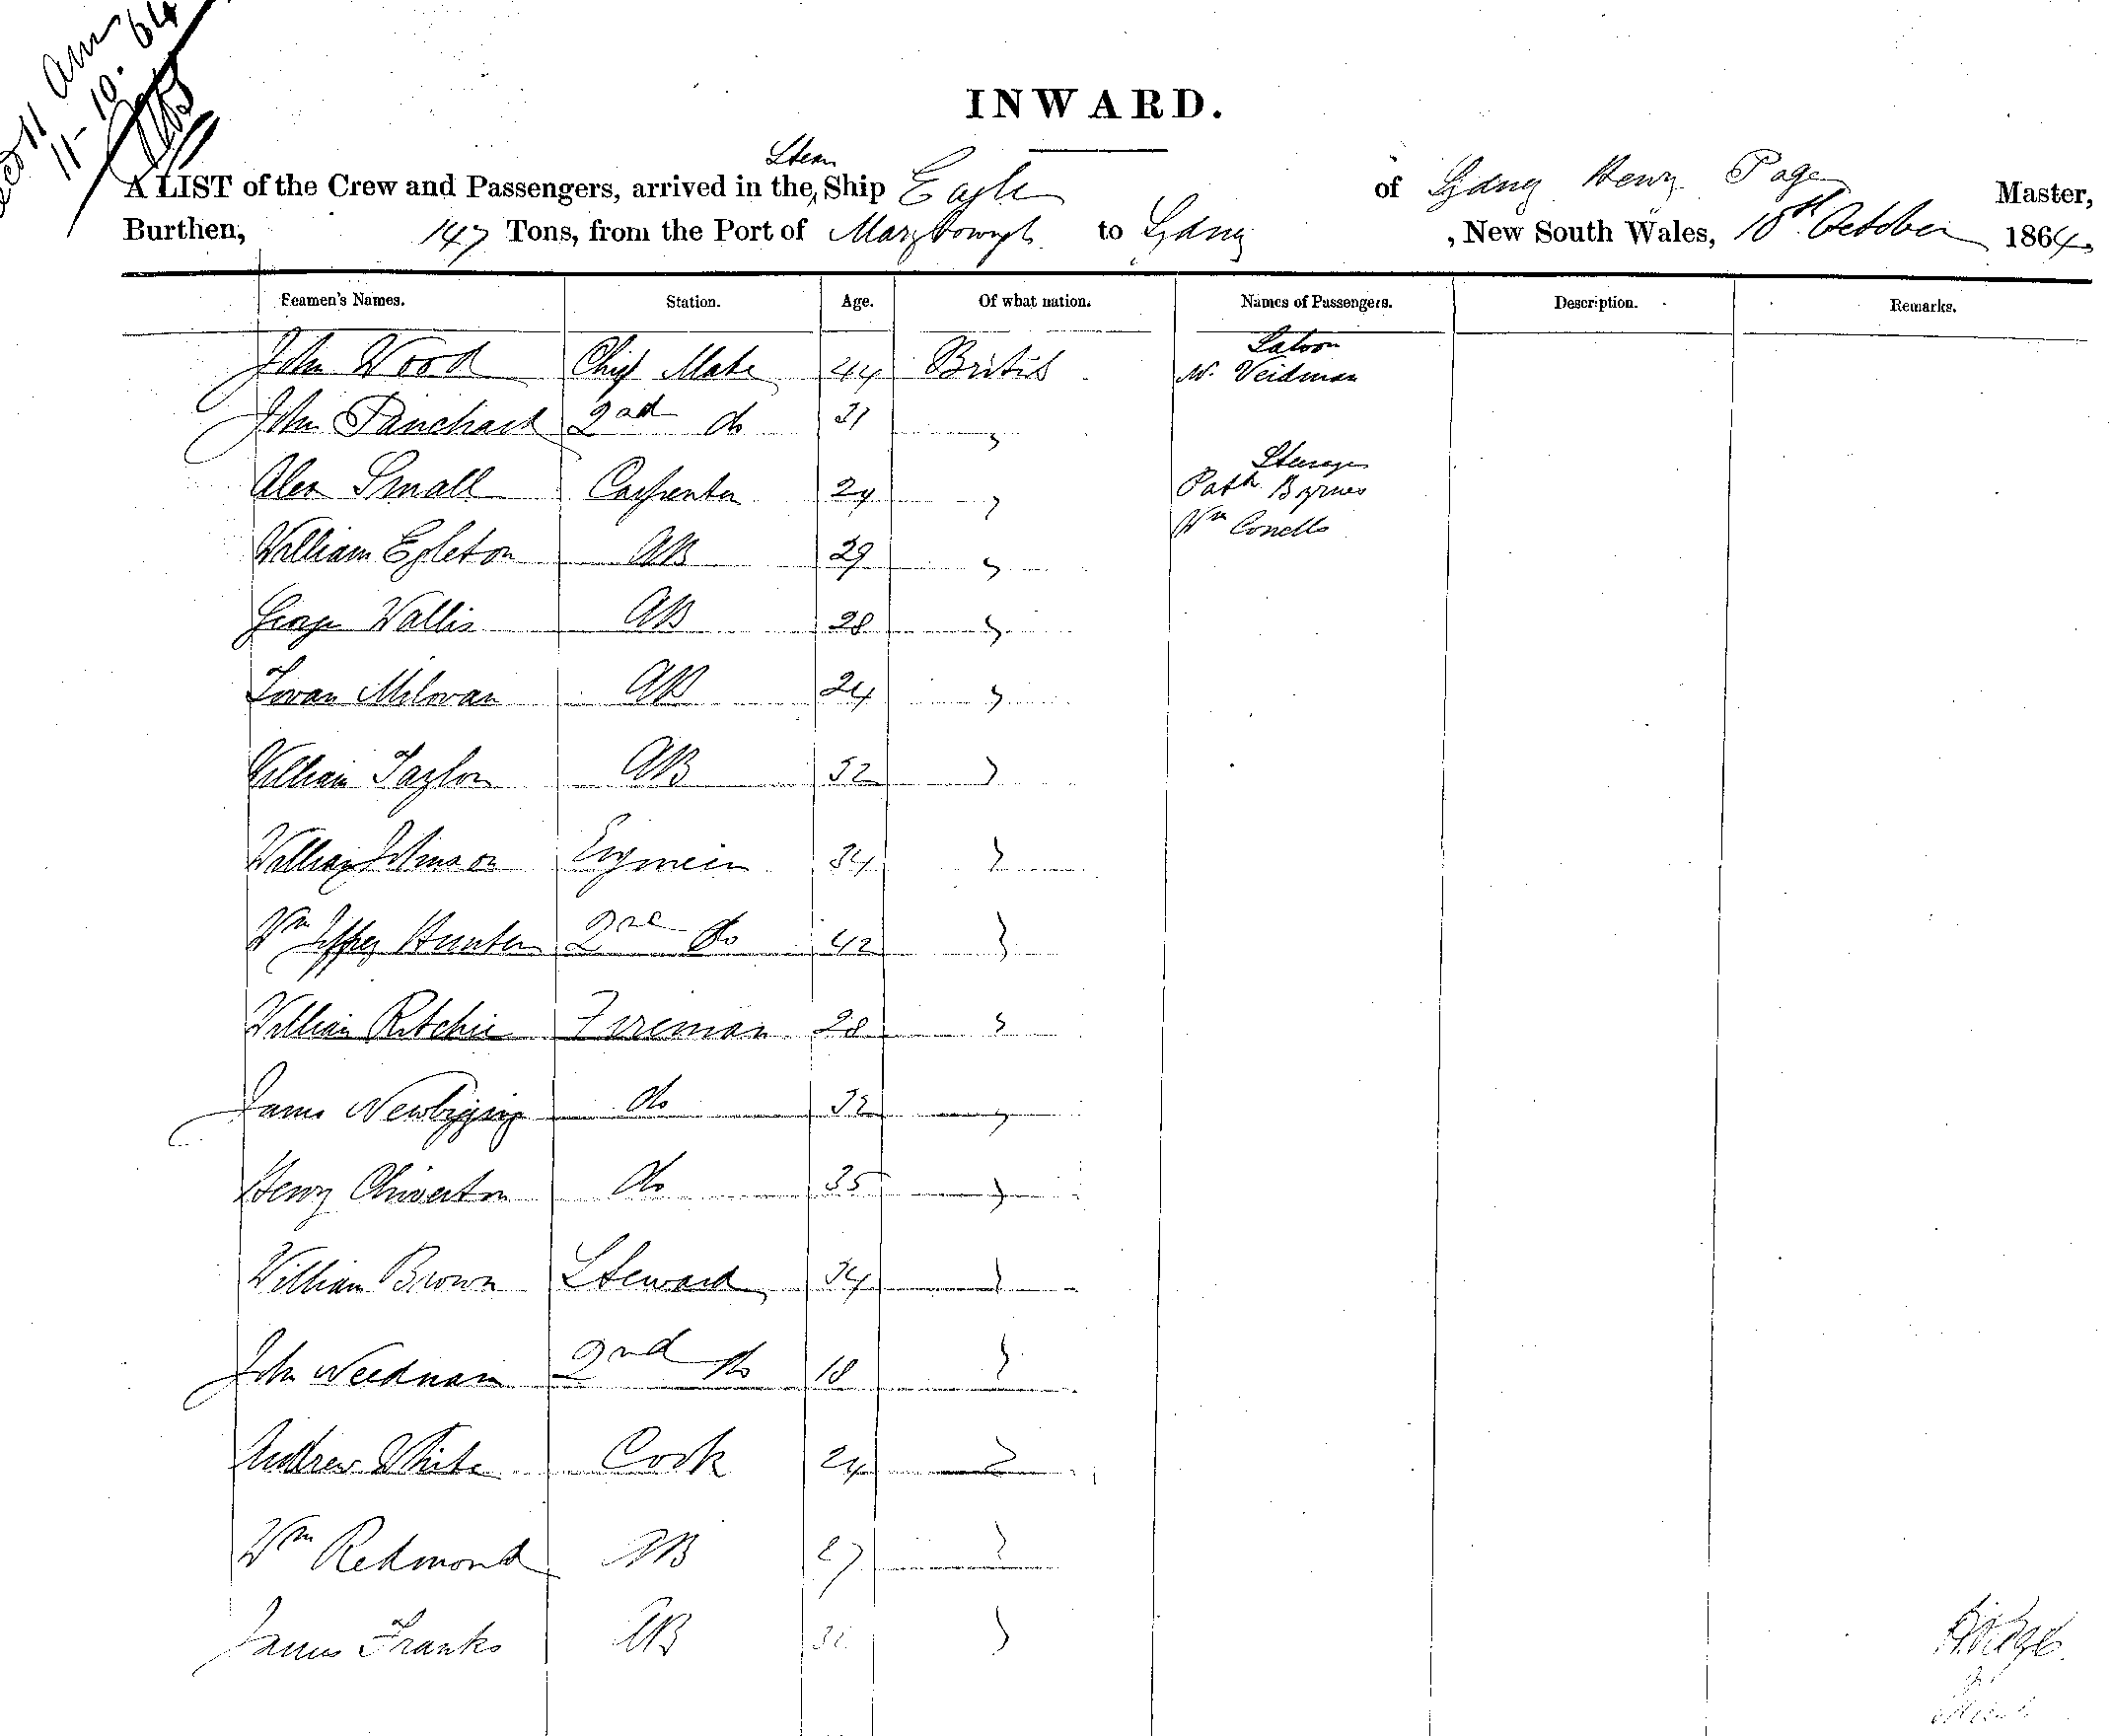 11 am
11-10.64
INWARD.
Steam
A LIST of the Crew and Passengers, arrived in the, Ship Eagle of Sydney Henry Page Master,
Burthen, 147 Tons, from the Port of Maryborough to Sydney , New South Wales, 10th October 1864,
Seamen's Names. Station. Age. Of what nation. Names of Passengers. Description. Remarks.
Saloon
John Wood Chief Mate 44 British Veidman
John 2nd do 31 "
Steerage
Alex Small Carpenter 24 " Patk Byrnes
Wm
William Egleton AB 29 "
George Wallis AB 28 "
Milovan AB 24 "
William Taylor AB 32 "
William Johnson Engineer 34 "
Wm Jeffrey Hunter 2nd do 42 "
William Ritchie Fireman 28 "
James Newbigging do 32 "
Henry Chiverton do 35 "
William Brown Steward 34 "
John Weedman 2nd do 18 "
Andrew White Cook 24 "
Wm Redmond AB 27 "
James Franks AB "